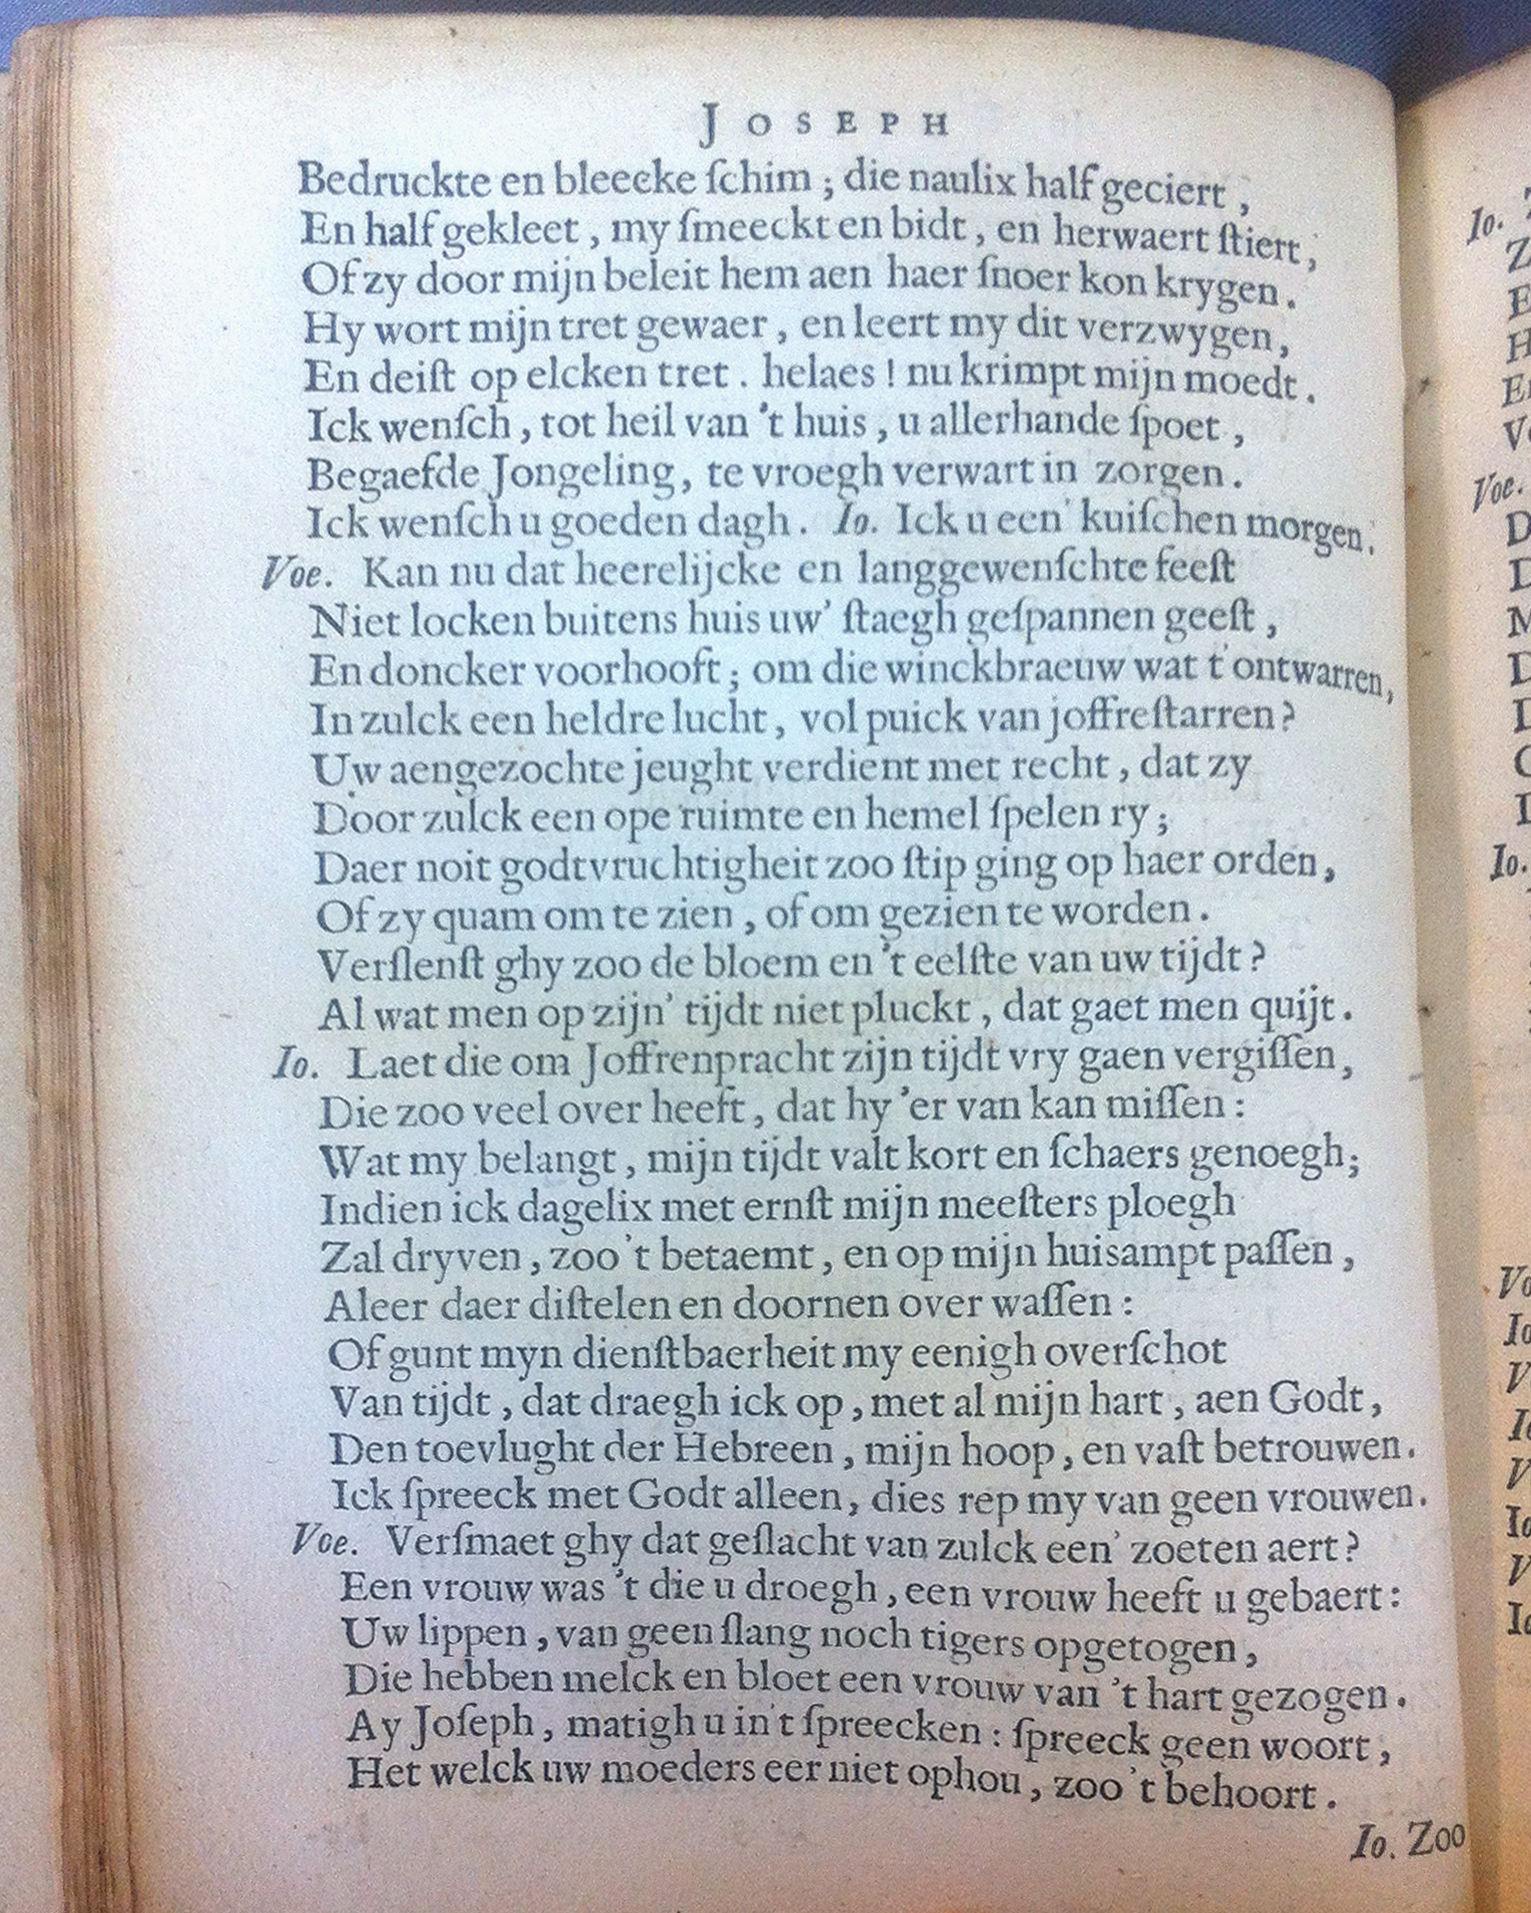 JOSEPH
Bedruckte en bleecke ſchim ; die naulix half geciert ,
En half gekleet , my ſmeeckt en bidt , en herwaert ſtiert ,
Of zy door mijn beleit hem aen haer ſnoer kon krygen .
Hy wort mijn tret gewaer , en leert my dit verzwygen ,
En deiſt op elcken tret . helaes ! nu krimpt mijn moedt .
Ick wenſch , tot heil van 't huis , u allerhande ſpoet ,
Begaefde Jongeling , te vroegh verwart in zorgen .
Ick wenſch u goeden dagh . Io. Ick u een' kuiſchen morgen .
Voe. Kan nu dat heerelijcke en langgewenſchte feeſt
Niet locken buitens huis uw' ſtaegh geſpannen geeſt ,
En doncker voorhooft ; om die winckbraeuw wat t'ontwarren ,
In zulck een heldre lucht , vol puick van joffreſtarren ?
Uw aengezochte jeught verdient met recht , dat zy
Door zulck een ope ruimte en hemel ſpelen ry ;
Daer noit godtvruchtigheit zoo ſtip ging op haer orden ,
Of zy quam om te zien , of om gezien te worden .
Verſlenſt ghy zoo de bloem en 't eelſte van uw tijdt ?
Al wat men op zijn' tijdt niet pluckt , dat gaet men quijt .
Io. Laet die om Joffrenpracht zijn tijdt vry gaen vergiſſen ,
Die zoo veel over heeft , dat hy 'er van kan miſſen :
Wat my belangt , mijn tijdt valt kort en ſchaers genoegh ;
Indien ick dagelix met ernſt mijn meeſters ploegh
Zal dryven , zoo 't betaemt , en op mijn huisampt paſſen ,
Aleer daer diſtelen en doornen over waſſen :
Of gunt myn dienſtbaerheit my eenigh overſchot
Van tijdt , dat draegh ick op , met al mijn hart , aen Godt ,
Den toevlught der Hebreen , mijn hoop , en vaſt betrouwen .
Ick ſpreeck met Godt alleen , dies rep my van geen vrouwen .
Voe. Verſmaet ghy dat geſlacht van zulck een' zoeten aert ?
Een vrouw was 't die u droegh , een vrouw heeft u gebaert :
Uw lippen , van geen ſlang noch tigers opgetogen ,
Die hebben melck en bloet een vrouw van 't hart gezogen .
Ay Joſeph , matigh u in 't ſpreecken : ſpreeck geen woort ,
Het welck uw moeders eer niet ophou , zoo 't behoort .
Io. Zoo
Io.
Voe.
Io.